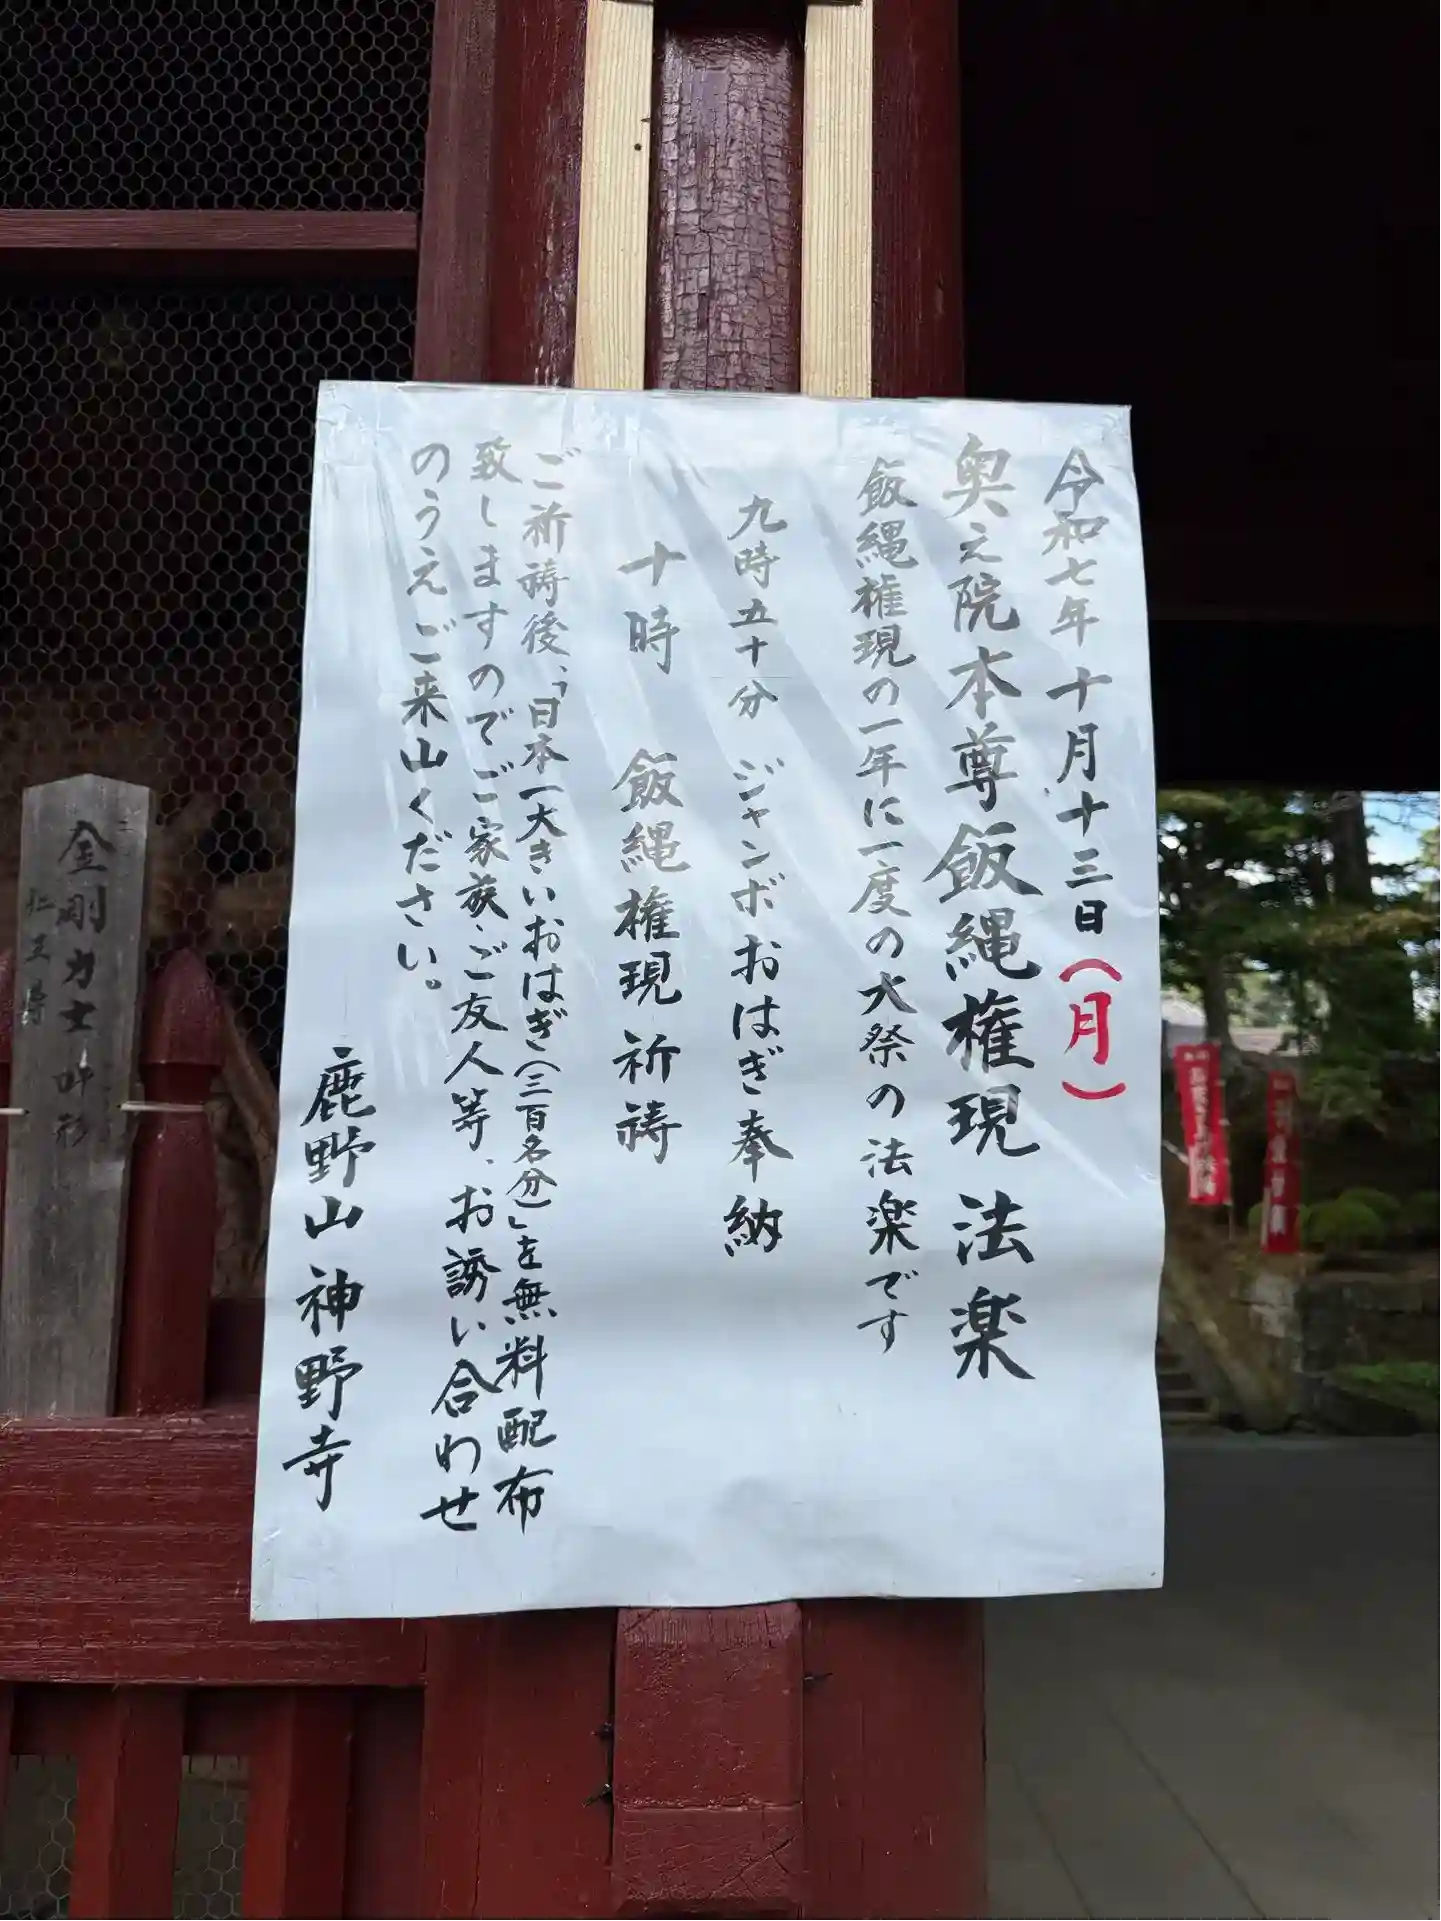 令和七年十月十三日(月)
奥之院本尊飯縄権現 法楽
飯縄権現の一年に一度の大祭の法楽です
九時五十分 ジャンボおはぎ奉納
十時 飯縄権現祈祷
ご祈祷後、「日本一大きいおはぎ(三百名分)」を無料配布
致しますのでご家族・ご友人等、お誘い合わせ
のうえご来山ください。
鹿野山神野寺
金剛力士 吽形
仁王尊